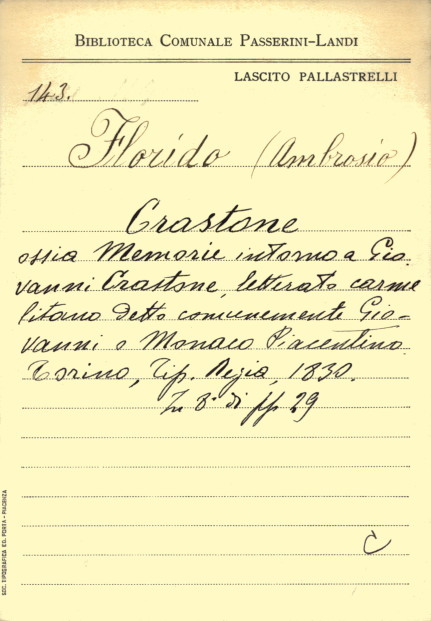 BIBLIOTECA COMUNALE PASSERINI-LANDI
LASCITO PALLASTRELLI
143.
Florido (Ambrosio)
Crastone
ossia Memorie intorno a Gio
vanni Crastone, letterato carme
litano detto comunemente Gio-
vanni o Monaco Piacentino.
Torino, Tip. Regia, 1830.
In 8° di pp 29
C
SOC. TIPOGRAFICA ED. PORTA - PIACENZA